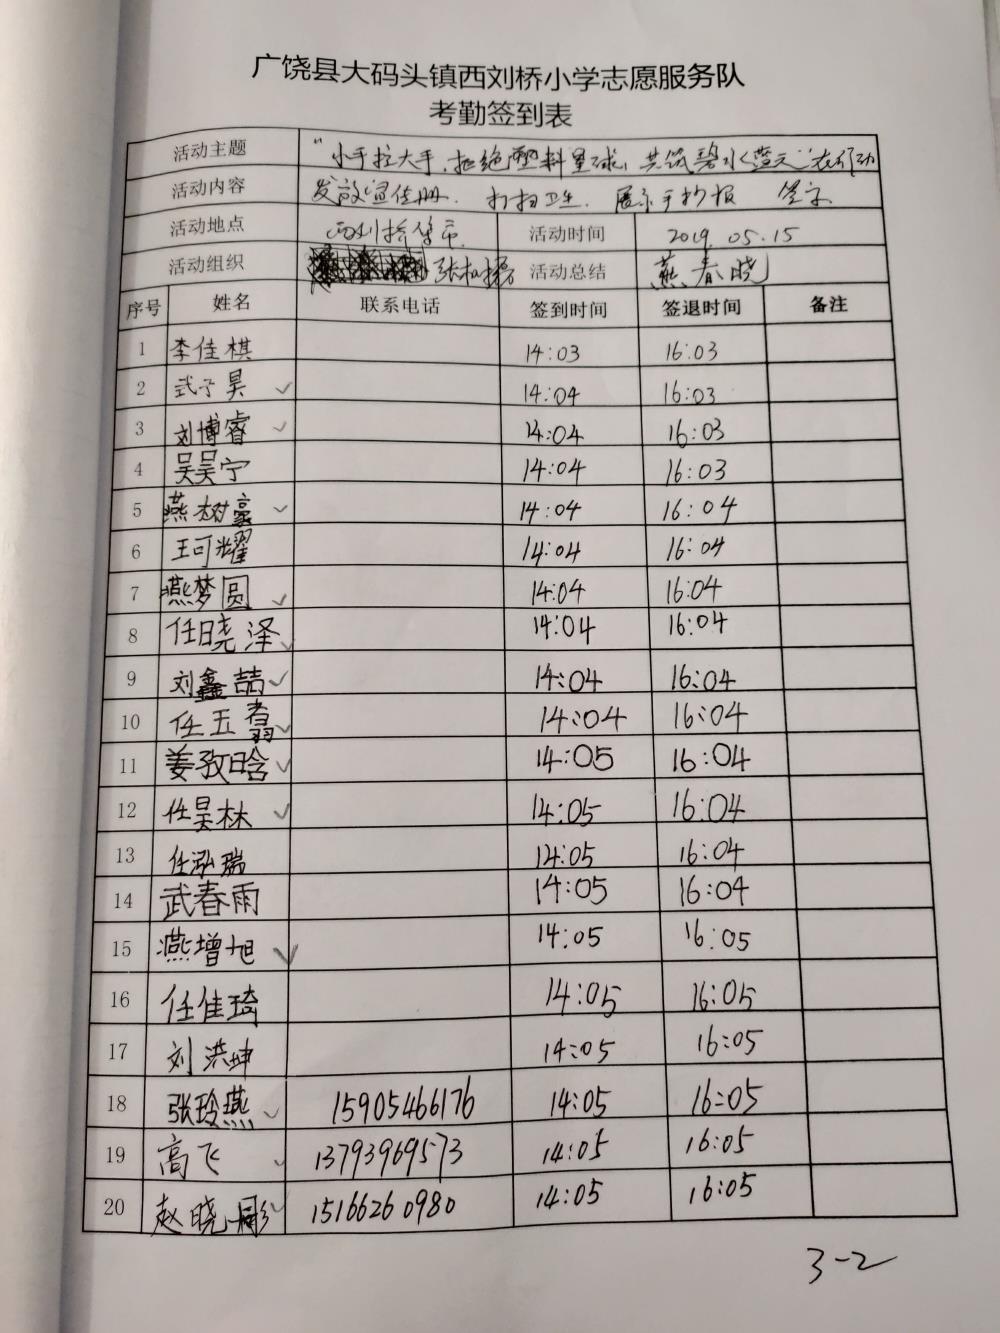 广饶县大码头镇西刘桥小学志愿服务队
考勤签到表
活动主题 "小手拉大手,拒绝塑料星球,共筑碧水蓝天"志愿活动
活动内容 发放宣传册、打扫卫生、展示手抄报 签字
活动地点 西刘桥集市 活动时间 2019.05.15
活动组织 张 活动总结 燕春晓
序号 姓名 联系电话 签到时间 签退时间 备注
1 李佳棋 14:03 16:03
2 武子昊 14:04 16:03
3 刘博睿 14:04 16:03
4 吴昊宁 14:04 16:03
5 燕树豪 14:04 16:04
6 王可耀 14:04 16:04
7 燕梦圆 14:04 16:04
8 任晓泽 14:04 16:04
9 刘鑫喆 14:04 16:04
10 任五翥 14:04 16:04
11 姜孜晗 14:05 16:04
12 任昊林 14:05 16:04
13 任泓瑞 14:05 16:04
14 武春雨 14:05 16:04
15 燕增旭 14:05 16:05
16 任佳琦 14:05 16:05
17 刘洪坤 14:05 16:05
18 张玲燕 15905466176 14:05 16:05
19 高飞 13793969573 14:05 16:05
20 赵晓彤 15166260980 14:05 16:05
3-2